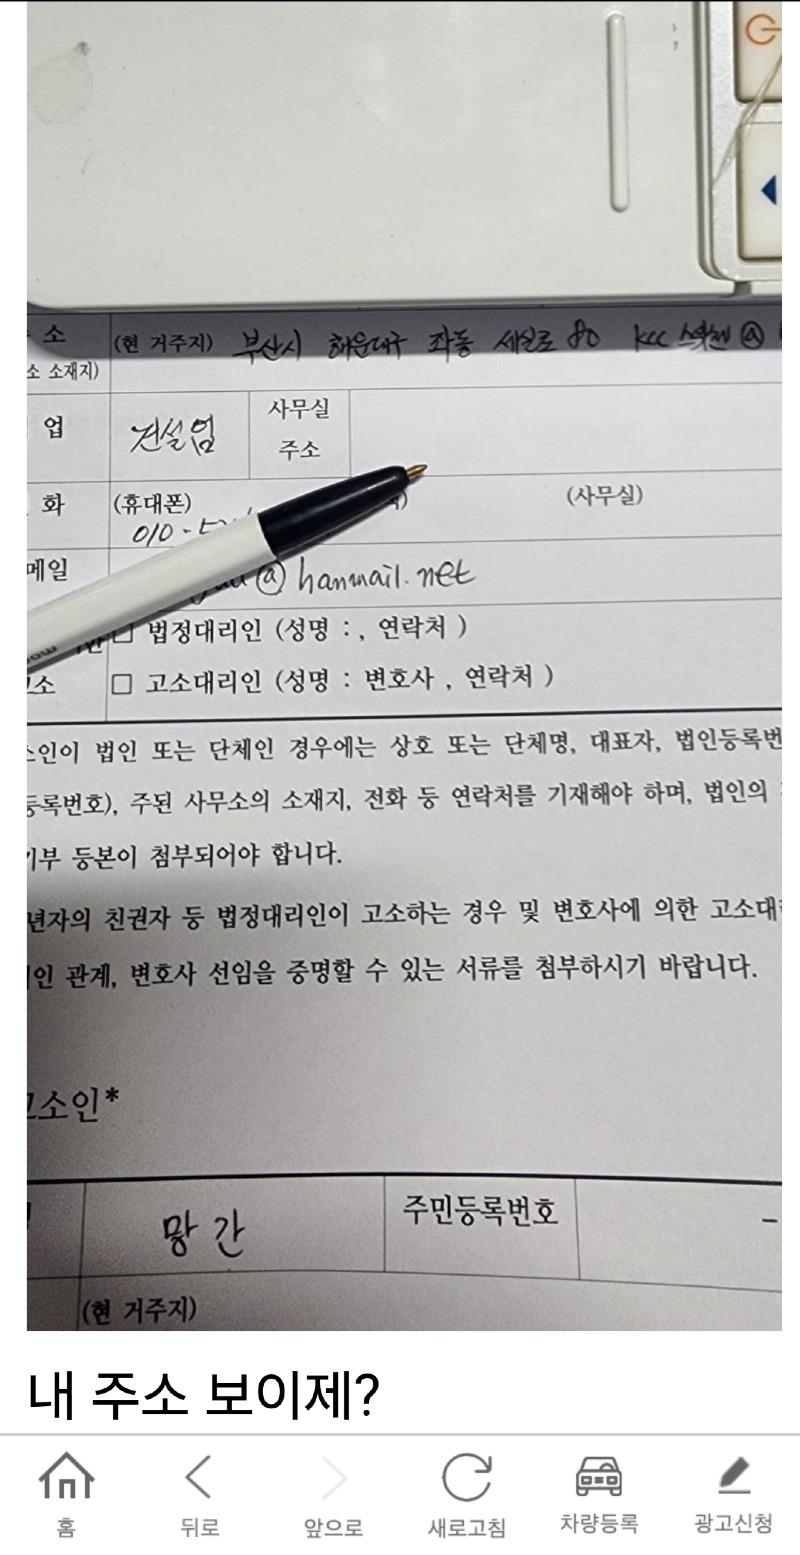 소 (현 거주지) 부산시 해운대구 좌동 세실로 80 kcc 스위첸 ⓐ
소 소재지)
업 건설업 사무실
주소
화 (휴대폰) (사무실)
010-5
메일 @hanmail.net
□ 법정대리인 (성명 : , 연락처 )
소 □ 고소대리인 (성명 : 변호사 , 연락처 )
인이 법인 또는 단체인 경우에는 상호 또는 단체명, 대표자, 법인등록번
등록번호), 주된 사무소의 소재지, 전화 등 연락처를 기재해야 하며, 법인의
기부 등본이 첨부되어야 합니다.
년자의 친권자 등 법정대리인이 고소하는 경우 및 변호사에 의한 고소대
인 관계, 변호사 선임을 증명할 수 있는 서류를 첨부하시기 바랍니다.
고소인*
망간 주민등록번호 -
(현 거주지)
내 주소 보이제?
홈 뒤로 앞으로 새로고침 차량등록 광고신청